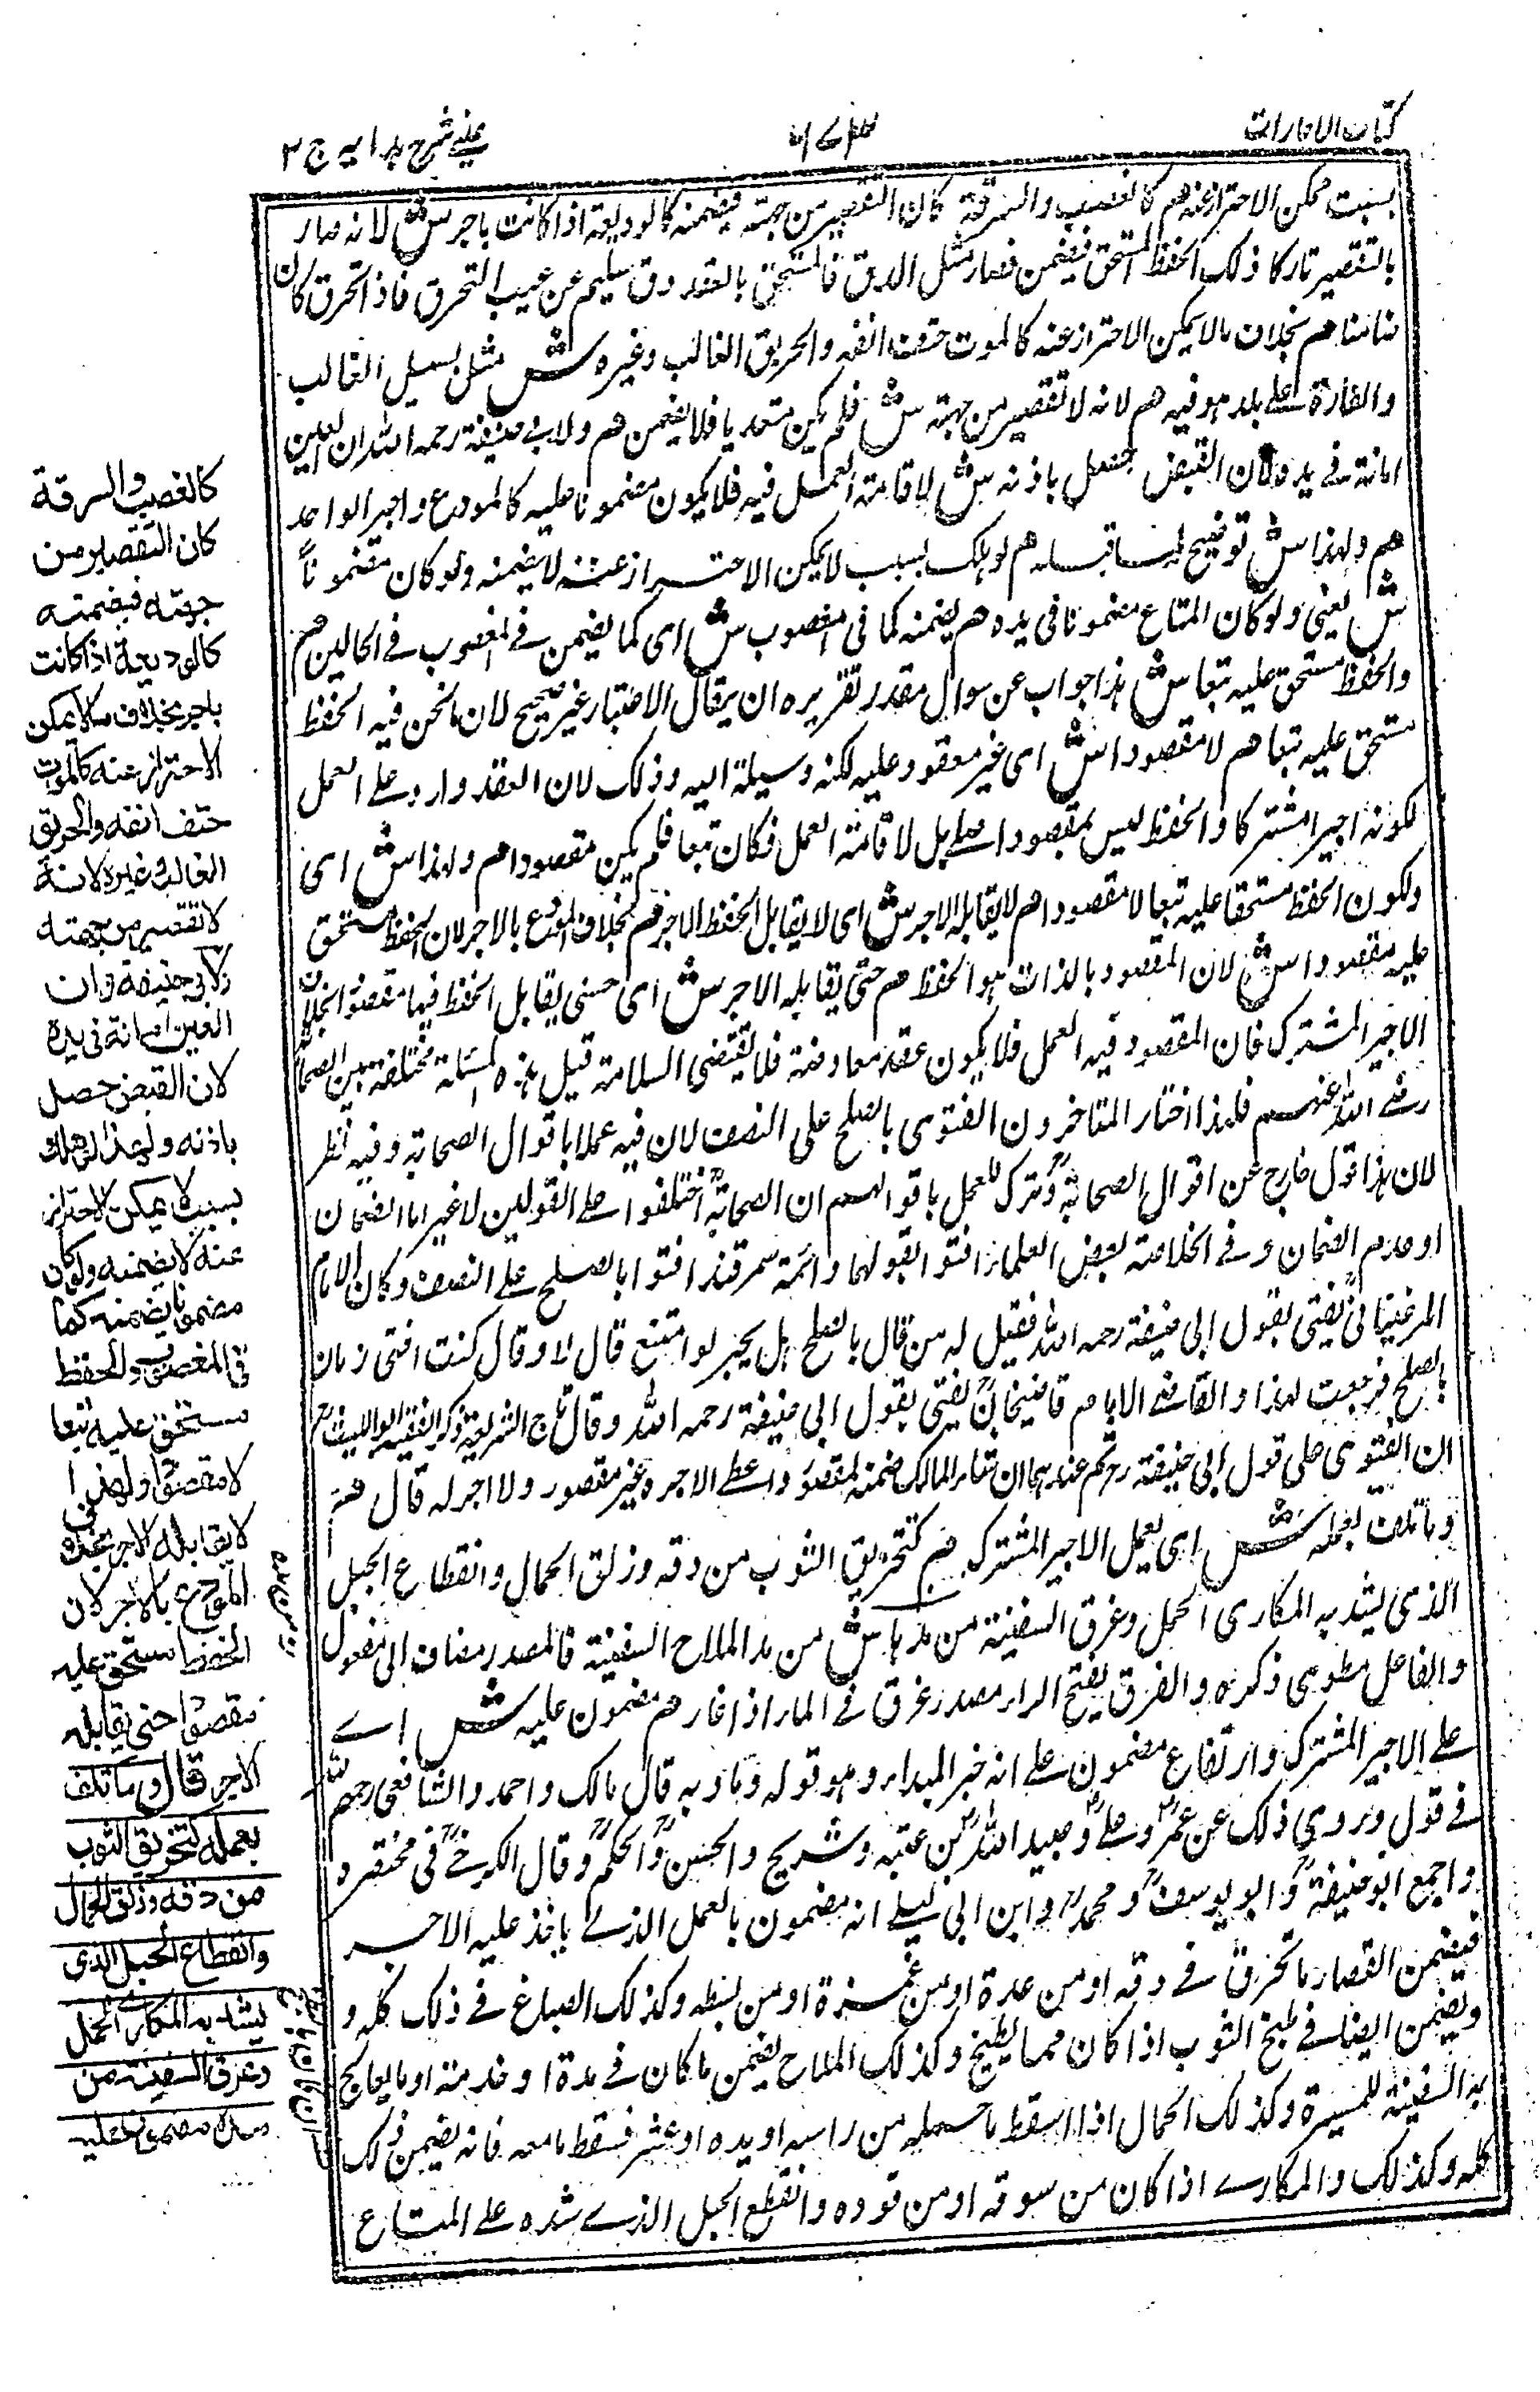 كتاب الاجارات
عينى شرح هدايه ج ٣
بسبب يمكن الاحتراز عنه هم كالغصب والسرقة كان التقصير من جهته فيضمنه كالوديعة اذا كانت باجر ش لانه صار
بالتقصير تاركا ذلك الحفظ المستحق فيضمن فصار مثل الدق فالمستحق بالعقد دق سليم عن عيب التحرق فاذا تحرق كان
ضامنا هم بخلاف مالا يمكن الاحتراز عنه كالموت حتف انفه والحريق الغالب وغيره ش مثل السيل الغالب
والغارة على بلد هو فيه هم لانه لا تقصير من جهته ش فلم يكن متعديا فلا يضمن هم ولابى حنيفة رحمه الله ان العين
امانة فى يده لان القبض حصل باذنه ش لاقامة العمل فيه فلا يكون مضمونا عليه كالمودع واجير الواحد
هم ولهذا ش توضيح لما قبله هم لو هلك بسبب لا يمكن الاحتراز عنه لا يضمنه ولو كان مضمونا
ش يعنى ولو كان المتاع مضمونا فى يده هم يضمنه كما فى المغصوب ش اى كما يضمن فى المغصوب فى الحالين هم
والحفظ مستحق عليه تبعا ش هذا جواب عن سوال مقدر تقريره ان يقال الاعتبار غير صحيح لان مانحن فيه الحفظ
مستحق عليه تبعا هم لا مقصودا ش اى غير معقود عليه لكنه وسيلة اليه وذلك لان العقد وارد على العمل
لكونه اجيرا مشتركا والحفظ ليس بمقصود اصلى بل لاقامة العمل فكان تبعا فلم يكن مقصودا هم ولهذا ش اى
ولكون الحفظ مستحقا عليه تبعا لا مقصودا هم لا يقابله الاجر ش اى لا يقابل الحفظ الاجر هم بخلاف المودع بالاجر لان الحفظ مستحق
عليه مقصودا ش لان المقصود بالذات هو الحفظ هم حتى يقابله الاجر ش اى حتى يقابل الحفظ فيها مقصودا بخلاف
الاجير المشترك فان المقصود فيه العمل فلا يكون عقد معاوضة فلا يقتضى السلامة قيل هذه المسئلة مختلفة بين الصحابة
رضى الله عنهم فلهذا اختار المتاخرون الفتوى بالصلح على النصف لان فيه عملا باقوال الصحابة وفيه نظر
لان هذا قول خارج عن اقوال الصحابة وترك للعمل باقوالهم ان الصحابة اختلفوا على القولين لا غير اما الضمان
او عدم الضمان و فى الخلاصة بعض العلماء افتوا بقولهما وائمة سمرقند افتوا بالصلح على النصف وكان الامام
المرغينانى يفتى بقول ابى حنيفة رحمه الله فقيل له من قال بالصلح هل يجبر لو امتنع قال لا وقال كنت افتى زمان
بالصلح فرجعت لهذا والقاضى الامام قاضيخان يفتى بقول ابى حنيفة رحمه الله وقال تاج الشريعة ذكر الفقيه ابو الليث
ان الفتوى على قول ابى حنيفة ثم عندهما ان شاء المالك ضمنه مقصورا واعطى الاجر وغير مقصور ولا اجر له قال هم
وما تلف بعمله ش اى بعمل الاجير المشترك هم كتخريق الثوب من دقه وزلق الحمال وانقطاع الحبل
الذى يشد به المكارى الحمل وغرق السفينة من مدها ش من مد الملاح السفينة فالمصدر مضاف الى مفعوله
والفاعل مطوى ذكره والغرق بفتح الراء مصدر غرق فى الماء اذا غار هم مضمون عليه ش اے
على الاجير المشترك وارتفاع مضمون على انه خبر المبتداء وهو قوله وما وبه قال مالك واحمد والشافعى رحمهم الله
فى قول وروى ذلك عن عمر وعلى وعبيد الله بن عتبة وشريح والحسن والحكم وقال الكرخى فى مختصره
واجمع ابو حنيفة وابو يوسف ومحمد وابن ابى ليلى انه مضمون بالعمل الذى ياخذ عليه الاجر
فيضمن القصار ما تخرق فى دقه او من عدة او من غمزة او من بسطه وكذلك الصباغ فى ذلك كله و
ويضمن ايضا فى طبخ الثوب اذا كان مما يطبخ وكذلك الملاح يضمن ما كان فى مدة او خدمته او ما يعالج
به السفينة للمسيرة وكذلك الحمال اذا اسقط ما حمله من راسه او يده او عثر فسقط ما معه فانه يضمن ذلك
كله وكذلك والمكارى اذا كان من سوقه او من قوده وانقطع الحبل الذى شده على المتاع
كالغصب والسرقة
كان التقصير من
جهته فيضمنه
كالوديعة اذا كانت
باجر بخلاف مالا يمكن
الاحتراز عنه كالموت
حتف انفه والحريق
الغالب وغيره لانه
لا تقصير من جهته
ولابى حنيفة ان
العين امانة فى يده
لان القبض حصل
باذنه ولهذا لو هلك
بسبب لا يمكن الاحتراز
عنه لا يضمنه ولو كان
مضمونا يضمنه كما
فى المغصوب والحفظ
مستحق عليه تبعا
لا مقصودا ولهذا
لا يقابله الاجر بخلاف
المودع بالاجر لان
الحفظ مستحق عليه
مقصودا حتى يقابله
الاجر قال وما تلف
بعمله كتخريق الثوب
من دقه وزلق الحمال
وانقطاع الحبل الذى
يشد به المكارى الحمل
وغرق السفينة من
مدها مضمون عليه